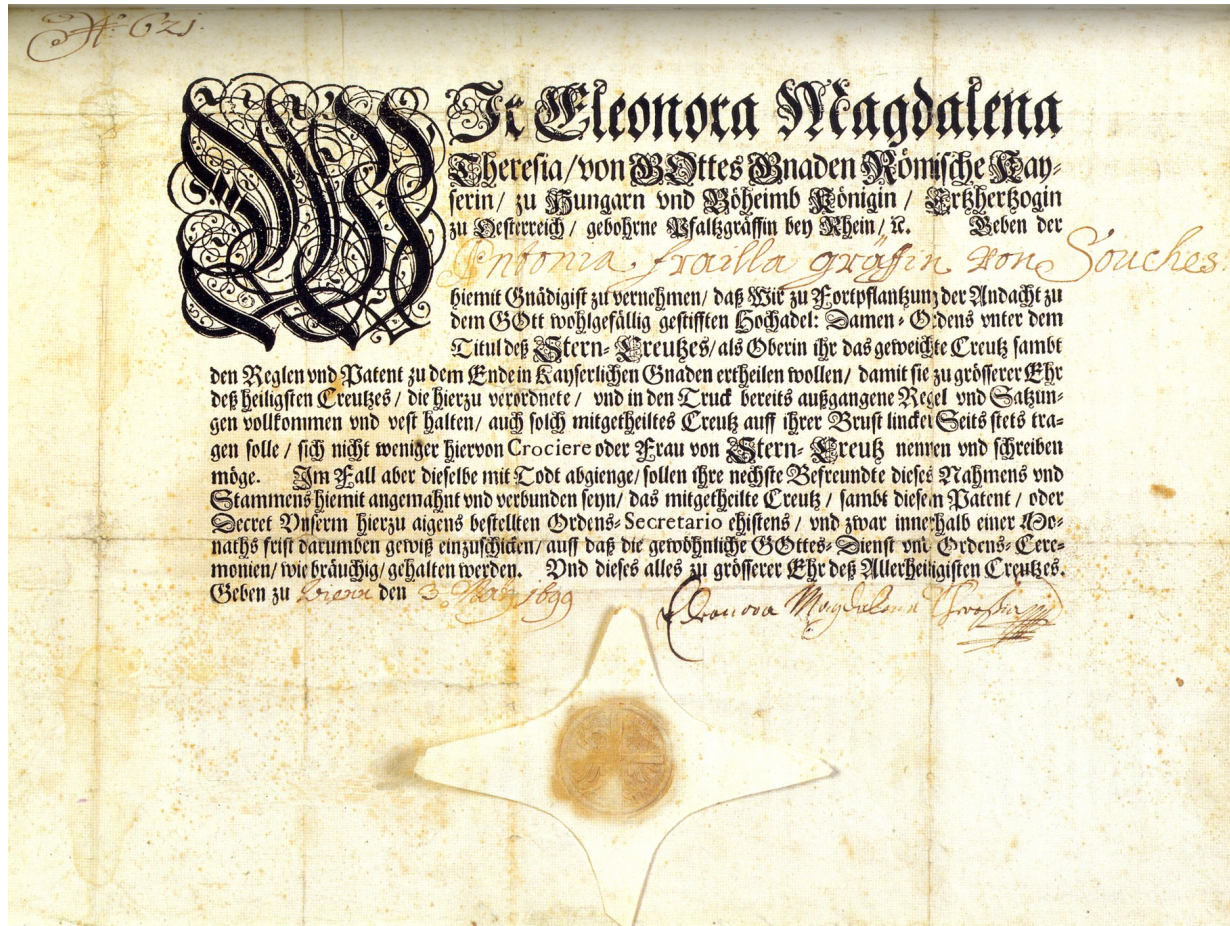 N: 621.
WJr Eleonora Magdalena
Theresia/ von GOttes Gnaden Römische Kay-
serin/ zu Hungarn vnd Böheimb Königin / Ertzhertzogin
zu Oesterreich / gebohrne Pfaltzgräffin bey Rhein/ ꝛc. Geben der
Antonia frailla gräffin von Souches
hiemit Gnädigist zu vernehmen/ daß Wir zu Fortpflantzung der Andacht zu
dem GOtt wohlgefällig gestifften Hochadel: Damen-Ordens vnter dem
Titul deß Stern-Creutzes/ als Oberin ihr das geweichte Creutz sambt
den Reglen vnd Patent zu dem Ende in Kayserlichen Gnaden ertheilen wollen/ damit sie zu grösserer Ehr
deß heiligsten Creutzes / die hierzu verordnete / vnd in den Truck bereits außgangene Regel vnd Satzun-
gen vollkommen vnd vest halten/ auch solch mitgetheiltes Creutz auff ihrer Brust lincker Seits stets tra-
gen solle / sich nicht weniger hiervon Crociere oder Frau von Stern-Creutz nennen vnd schreiben
möge. Im Fall aber dieselbe mit Todt abgienge/ sollen ihre nechste Befreundte dieses Nahmens vnd
Stammens hiemit angemahnt vnd verbunden seyn/ das mitgetheilte Creutz / sambt diesem Patent / oder
Decret Vnserm hierzu aigens bestellten Ordens-Secretario ehistens / vnd zwar innerhalb einer Mo-
naths frist darumben gewiß einzuschicken/ auff daß die gewöhnliche GOttes-Dienst vnd Ordens-Cere-
monien/ wie bräuchig/ gehalten werden. Vnd dieses alles zu grösserer Ehr deß Allerheiligisten Creutzes.
Geben zu Wienn den 3. May 1699
Eleonora Magdalena Theresia